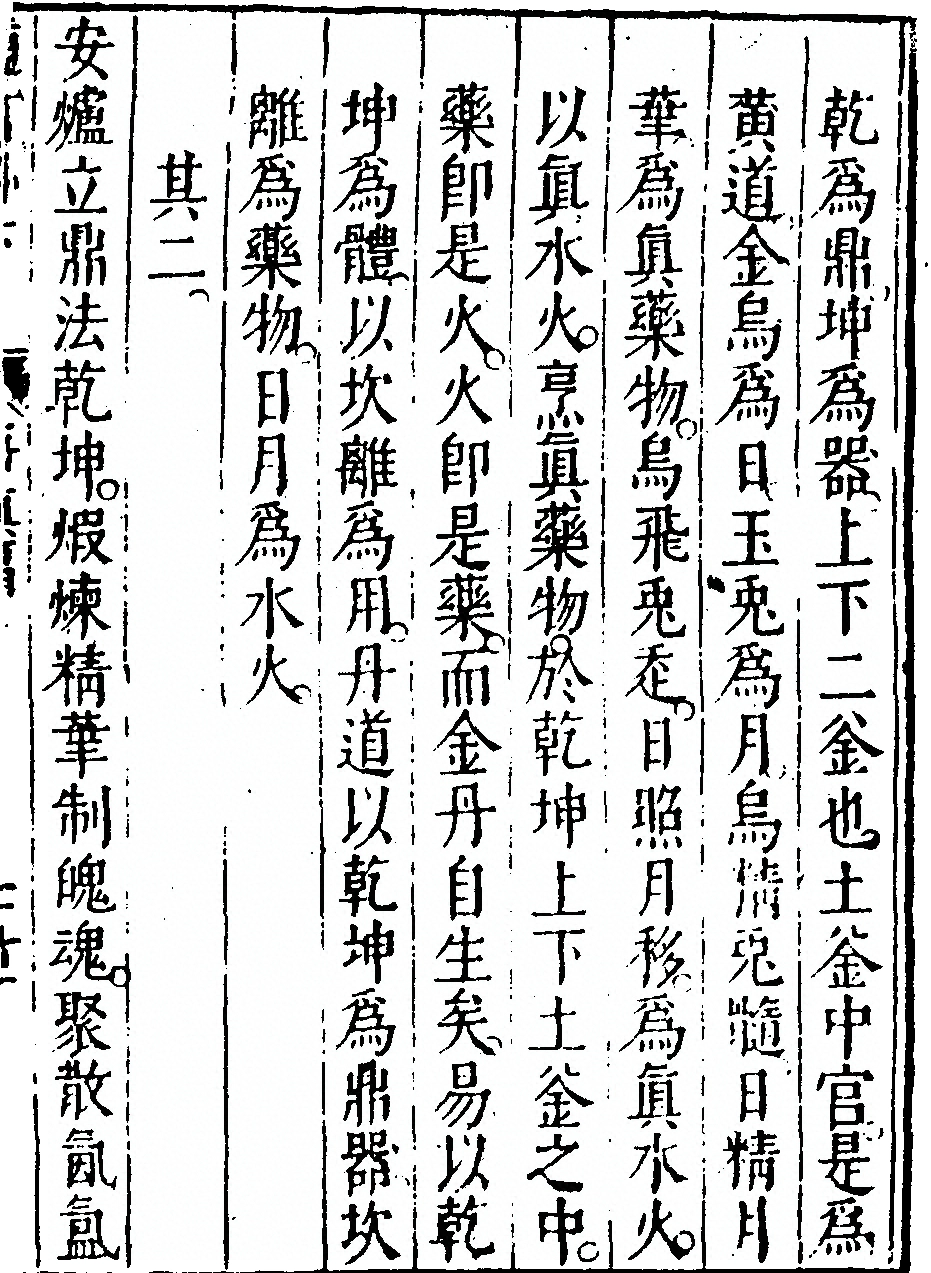 乾爲鼎坤爲器上下二釜也土釜中官是爲
黃道金烏爲日玉兎爲月烏情兎髓日精月
華爲眞藥物烏飛兎走日照月移爲眞水火
以眞水火烹眞藥物於乾坤上下土釜之中
藥卽是火火卽是藥而金丹自生矣易以乾
坤爲體以坎離爲用丹道以乾坤爲鼎器坎
離爲藥物日月爲水火
其二
安爐立鼎法乾坤煆煉精華制魄魂聚散氤氳